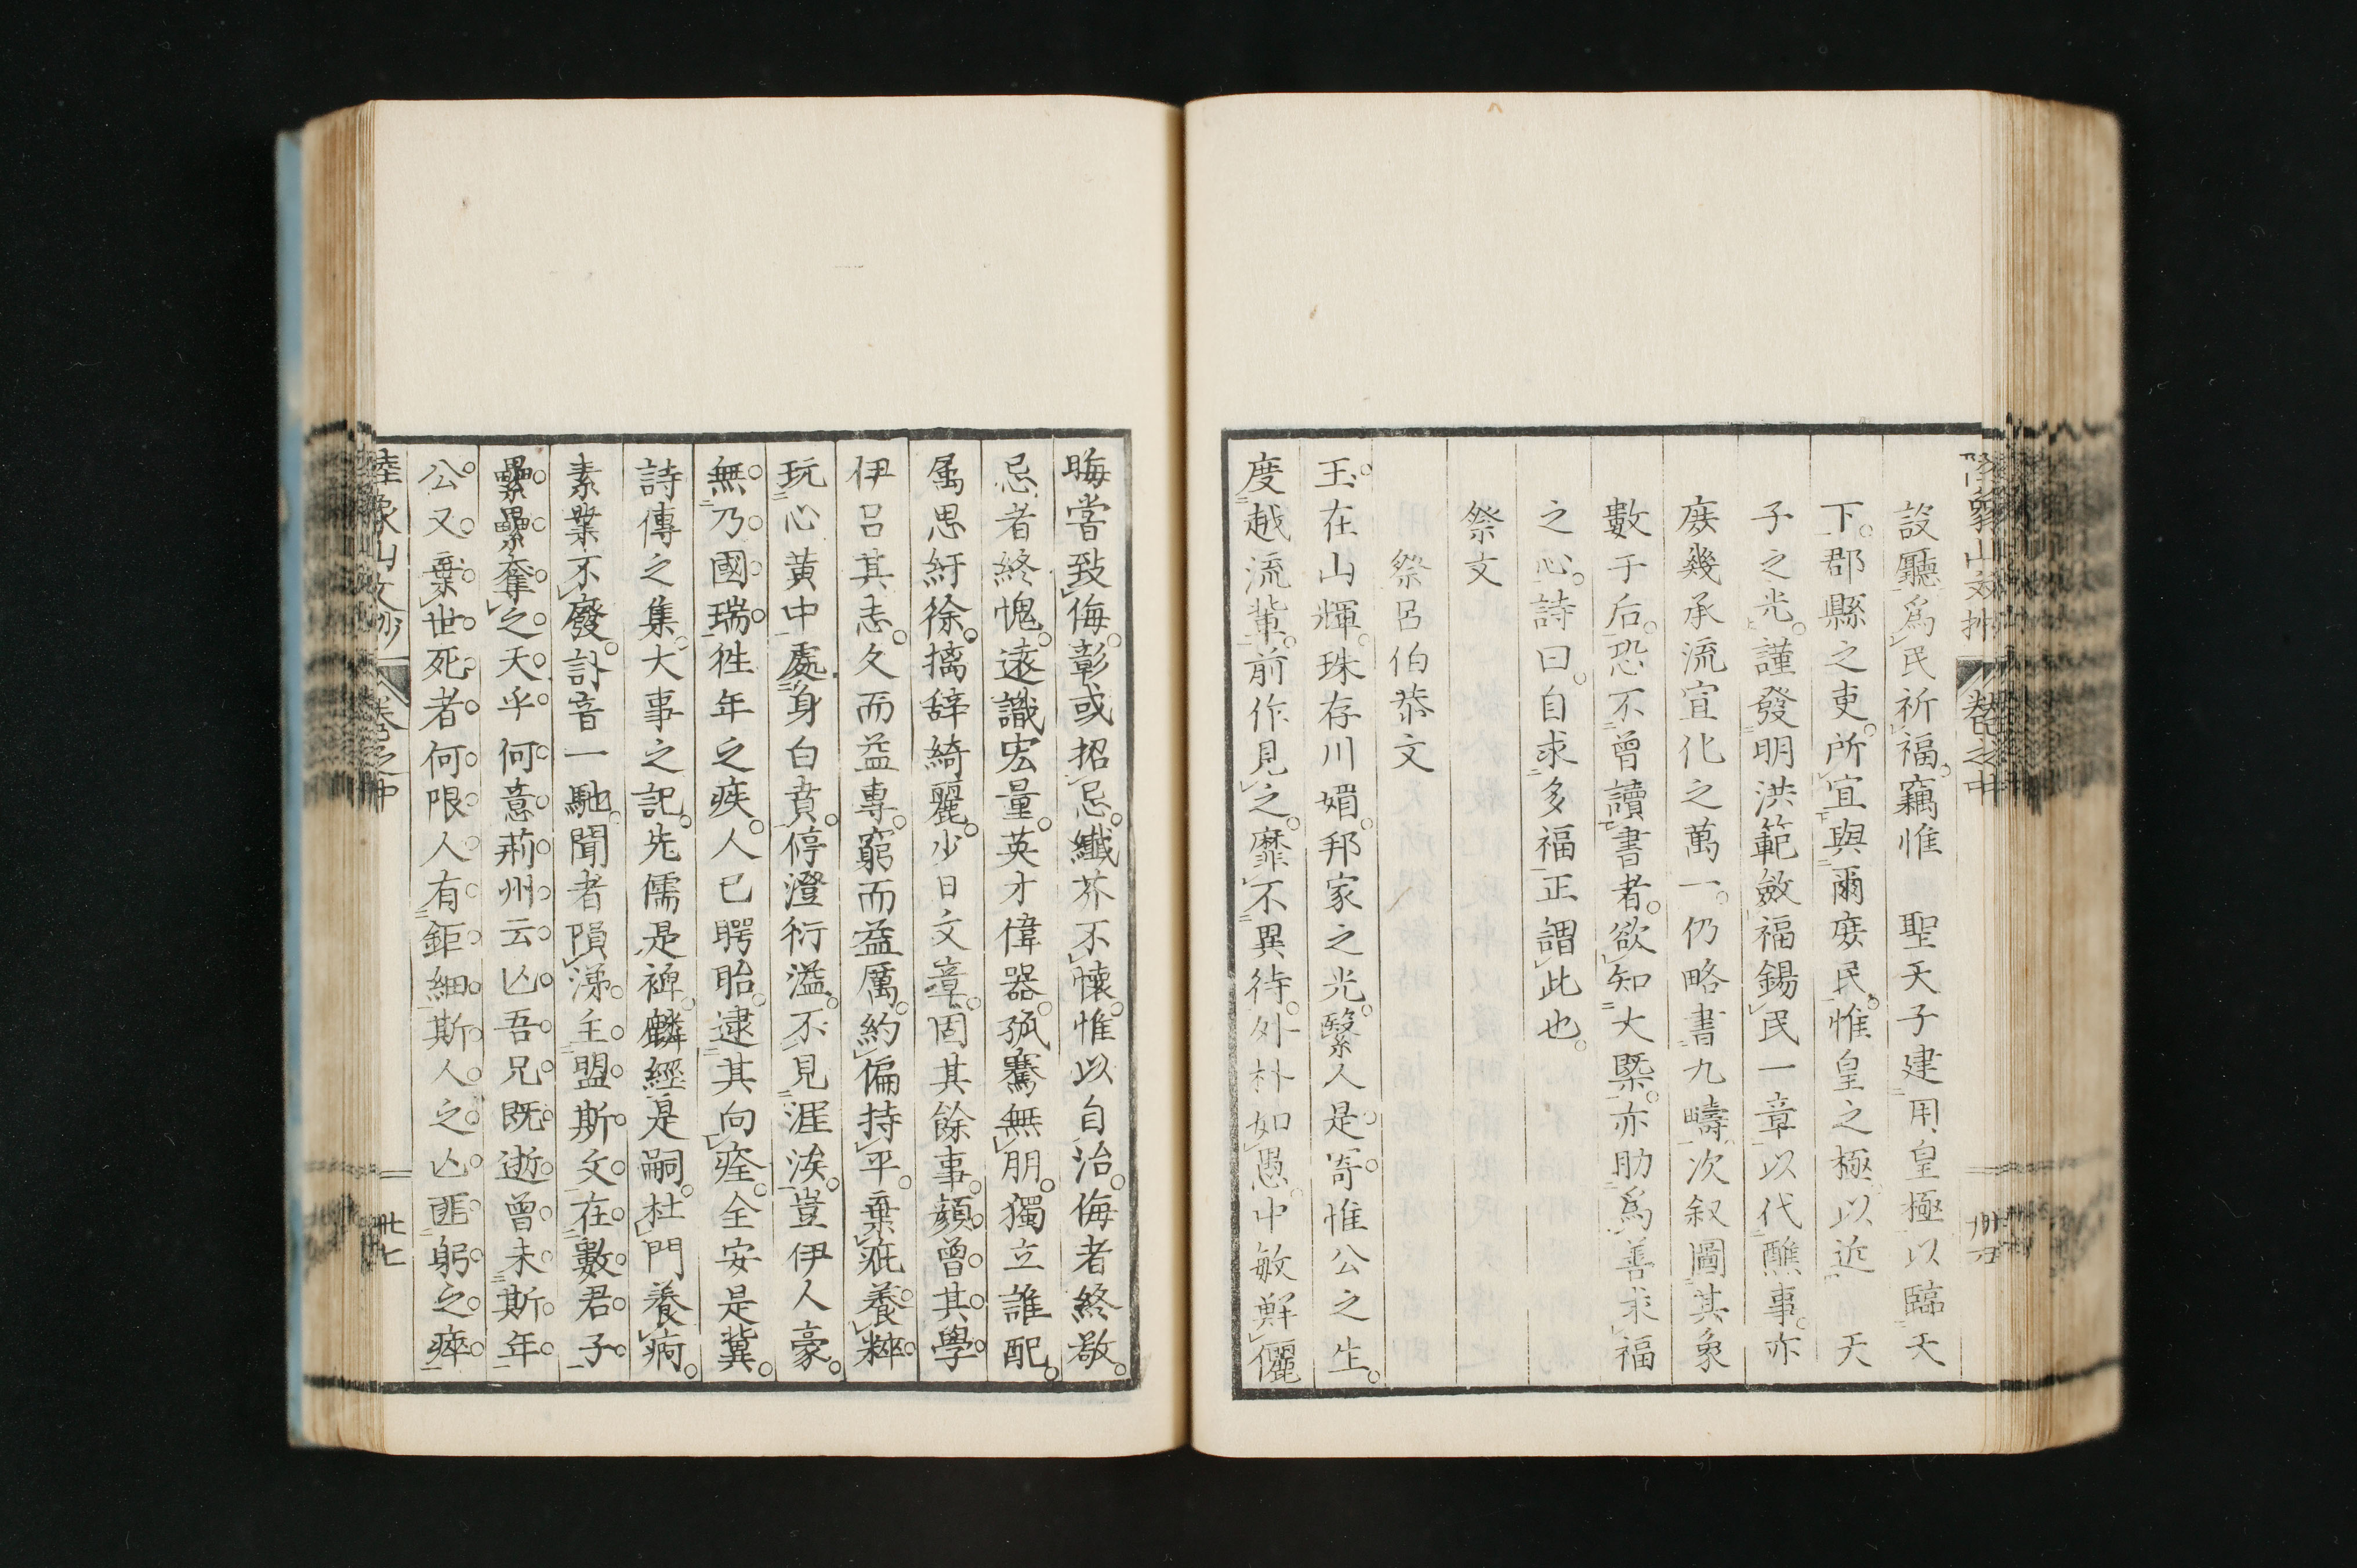 設廳爲民祈福竊惟　聖天子建用皇極以臨天
下。郡縣之吏。所宜與爾庶民。惟皇之極以近　天
子之光。謹發明洪範斂福錫民一章以代醮事。亦
庶幾承流宣化之萬一。仍略書九疇次叙圖其象
數于后。恐不曾讀書者。欲知大槩。亦助爲善求福
之心。詩曰。自求多福正謂此也。
祭文
祭呂伯恭文
玉在山輝。珠存川媚。邦家之光。繄人是寄。惟公之生。
度越流輩。前作見之。靡不異待。外朴如愚。中敏鮮儷
晦嘗致侮。彰或招忌。纖芥不懷。惟以自治。侮者終敬。
忌者終愧。遠識宏量。英才偉器。孤騫無朋。獨立誰配。
属思紆徐。摛辭綺麗。少日文章。固其餘事。顔曾其學
伊呂其志。久而益專。窮而益厲。約偏持平。棄疵養粹。
玩心黄中。處身白賁。停澄衍溢。不見涯涘。豈伊人豪。
無乃國瑞。徃年之疾。人已睯眙。逮其向痊。全安是冀。
詩傳之集。大事之記。先儒是裨。麟經是嗣。杜門養病。
素業不廢。訃音一馳。聞者隕涕。主盟斯文。在數君子
纍纍奪之。天乎何意。荊州云亾。吾兄既逝。曾未斯年
公又棄世。死者何限。人有鉅細。斯人之亾。匪躬之瘁
陸象山文抄
卷之中
卅七